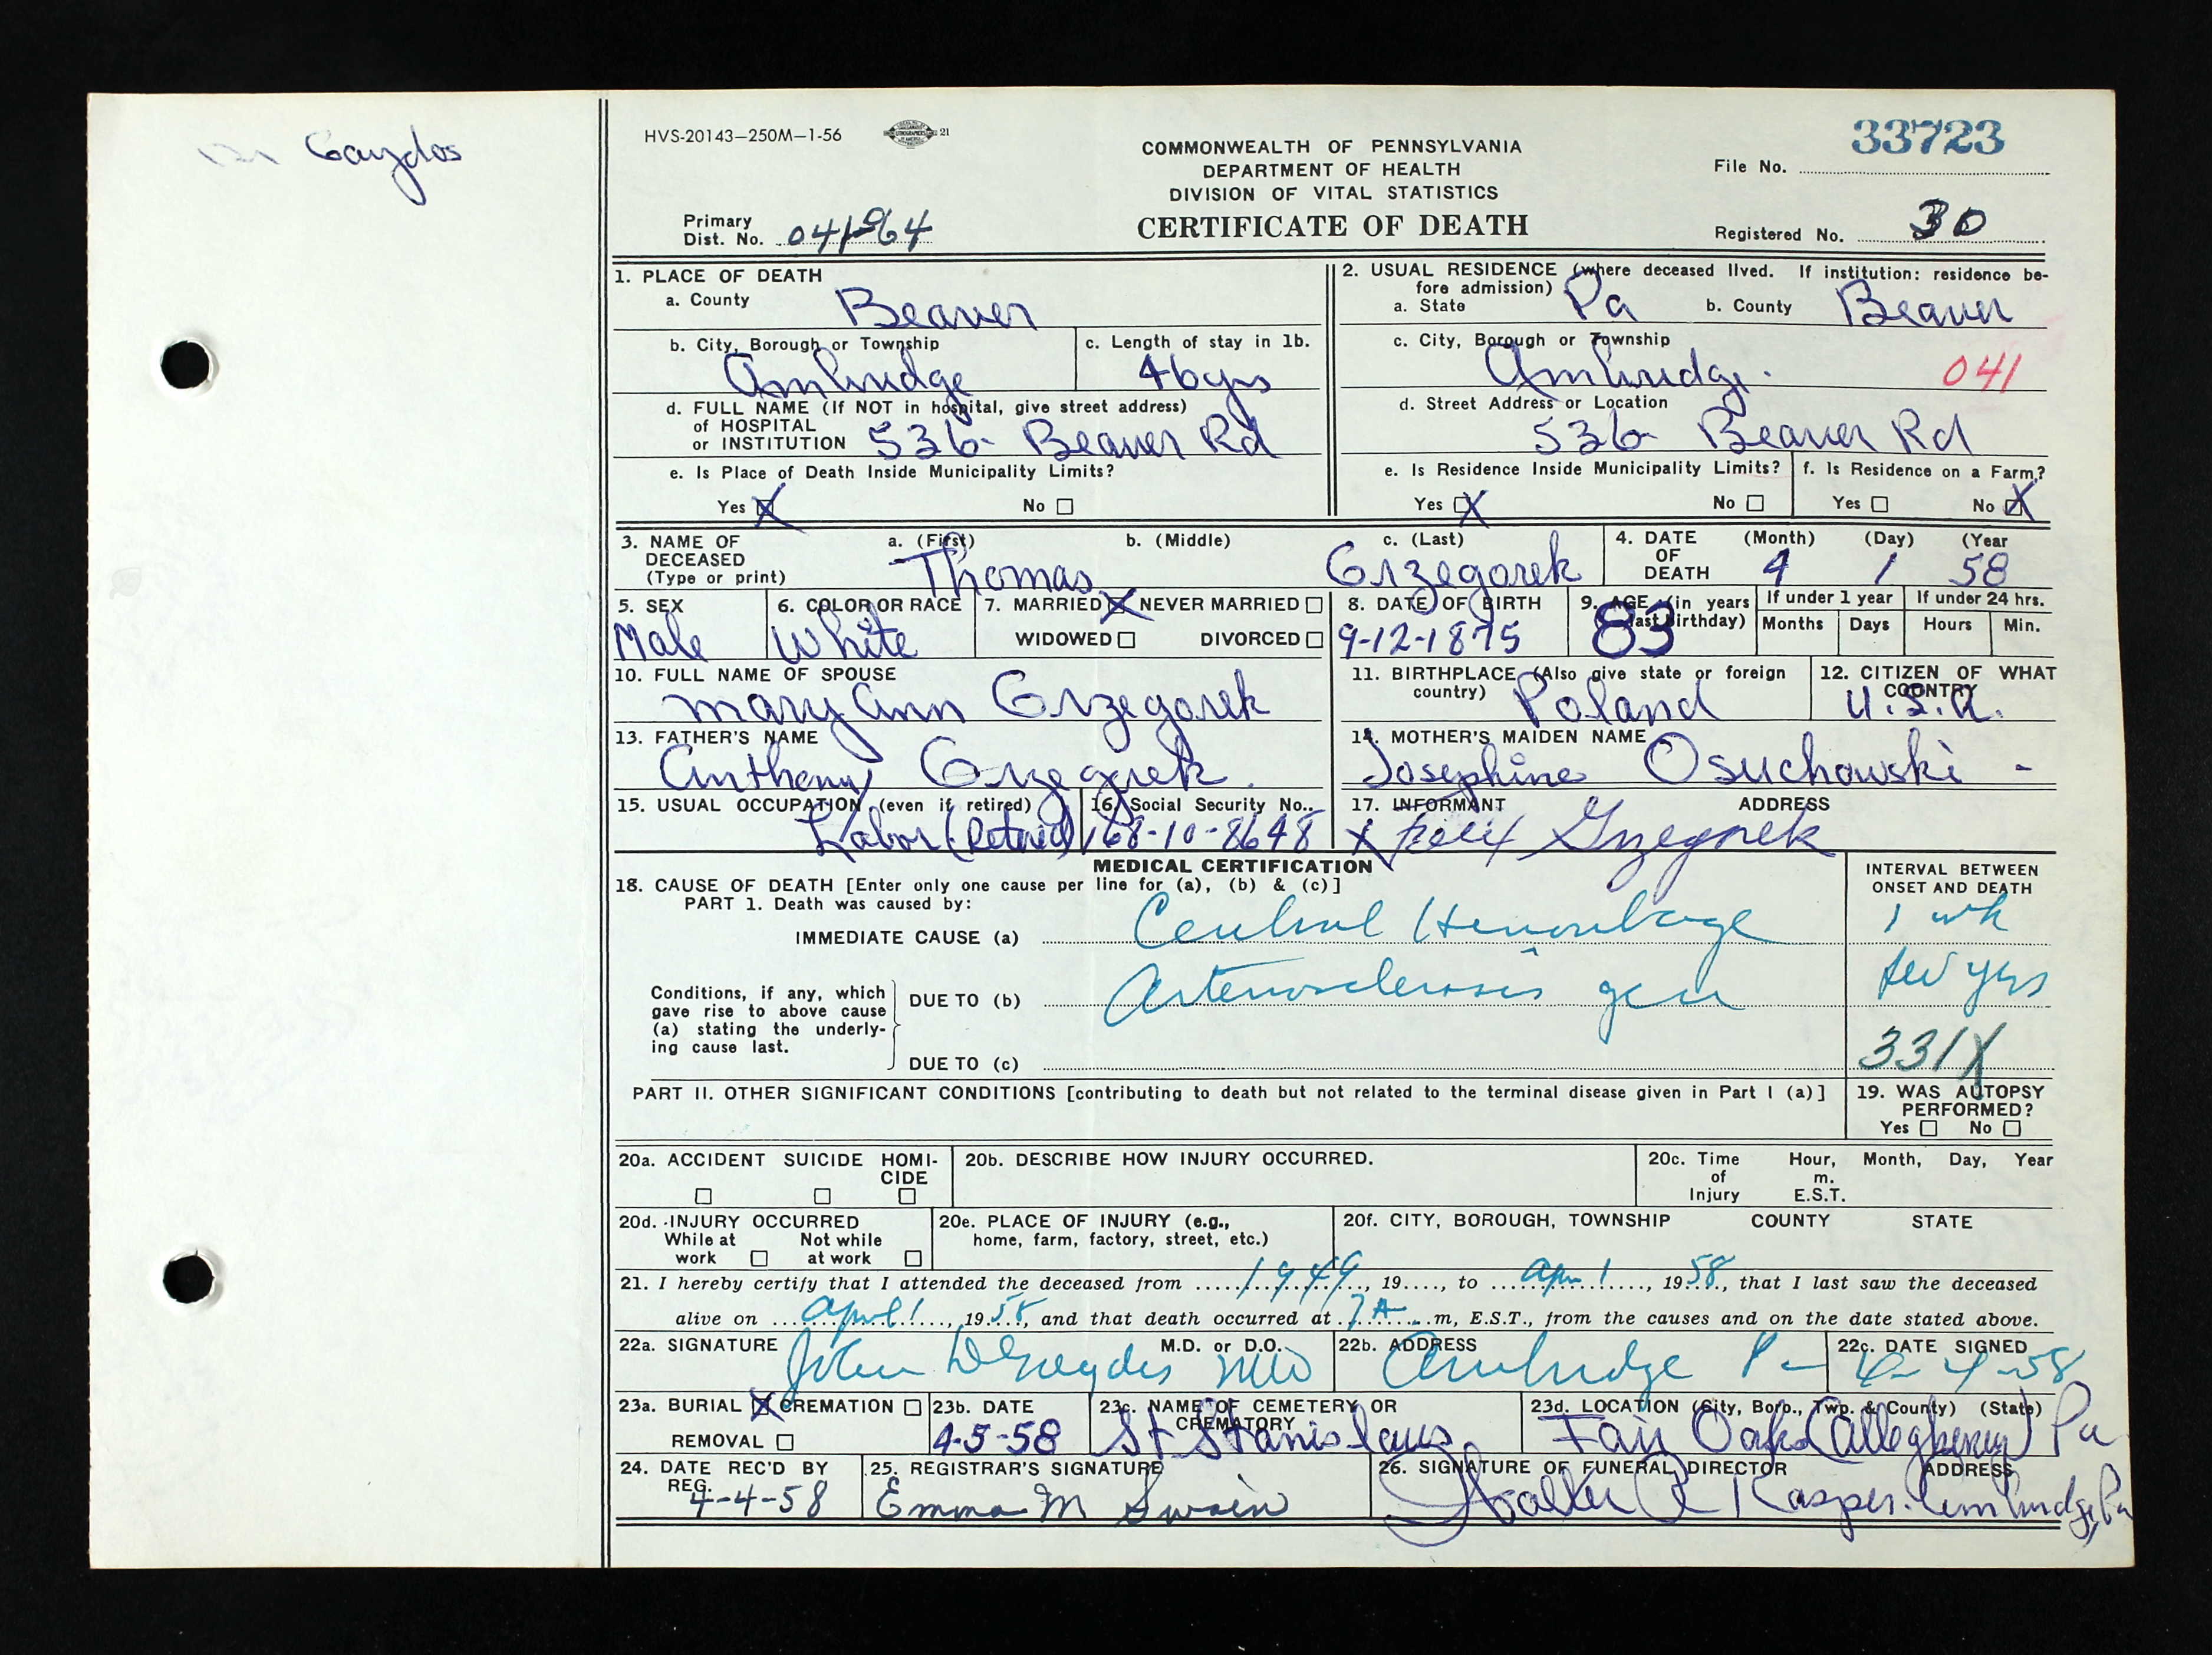 Gaydos
HVS-20143—250M—1-56 21
COMMONWEALTH OF PENNSYLVANIA
DEPARTMENT OF HEALTH
DIVISION OF VITAL STATISTICS
CERTIFICATE OF DEATH
33723
File No.
Primary
Dist. No. 041-964
Registered No. 30
1. PLACE OF DEATH
a. County Beaver
b. City, Borough or Township Ambridge
c. Length of stay in 1b. 46 yrs
d. FULL NAME (If NOT in hospital, give street address)
of HOSPITAL
or INSTITUTION 536 Beaver Rd
e. Is Place of Death Inside Municipality Limits?
Yes X No
2. USUAL RESIDENCE (where deceased lived. If institution: residence be-
fore admission)
a. State Pa b. County Beaver
c. City, Borough or Township Ambridge. 041
d. Street Address or Location
536 Beaver Rd
e. Is Residence Inside Municipality Limits?
Yes X No
f. Is Residence on a Farm?
Yes No X
3. NAME OF DECEASED
(Type or print)
a. (First) Thomas b. (Middle) c. (Last) Grzegorek
4. DATE OF DEATH (Month) (Day) (Year
4 1 58
5. SEX Male
6. COLOR OR RACE White
7. MARRIED X NEVER MARRIED
WIDOWED DIVORCED
8. DATE OF BIRTH 9-12-1875
9. AGE (in years last birthday) 83
If under 1 year Months Days
If under 24 hrs. Hours Min.
10. FULL NAME OF SPOUSE
Mary Ann Grzegorek
11. BIRTHPLACE (Also give state or foreign country) Poland
12. CITIZEN OF WHAT COUNTRY U.S.A.
13. FATHER'S NAME
Anthony Grzegorek
14. MOTHER'S MAIDEN NAME
Josephine Osuchowski -
15. USUAL OCCUPATION (even if retired)
Labor (Retired)
16. Social Security No.
168-10-8648
17. INFORMANT ADDRESS
X Felix Grzegorek
MEDICAL CERTIFICATION
INTERVAL BETWEEN
ONSET AND DEATH
18. CAUSE OF DEATH [Enter only one cause per line for (a), (b) & (c)]
PART 1. Death was caused by:
IMMEDIATE CAUSE (a) Cerebral Hemorrhage 1 wk
Conditions, if any, which
gave rise to above cause
(a) stating the underly-
ing cause last.
DUE TO (b) Arteriosclerosis gen few yrs
DUE TO (c) 331X
PART II. OTHER SIGNIFICANT CONDITIONS [contributing to death but not related to the terminal disease given in Part I (a)]
19. WAS AUTOPSY
PERFORMED?
Yes No
20a. ACCIDENT SUICIDE HOMI-
CIDE
20b. DESCRIBE HOW INJURY OCCURRED.
20c. Time of Injury Hour, Month, Day, Year
m.
E.S.T.
20d. INJURY OCCURRED
While at work Not while at work
20e. PLACE OF INJURY (e.g.,
home, farm, factory, street, etc.)
20f. CITY, BOROUGH, TOWNSHIP COUNTY STATE
21. I hereby certify that I attended the deceased from 1949, 19...., to Apr 1, 1958, that I last saw the deceased
alive on April 1, 1958, and that death occurred at 7 A m, E.S.T., from the causes and on the date stated above.
22a. SIGNATURE M.D. or D.O.
John D Gaydos MD
22b. ADDRESS
Ambridge Pa
22c. DATE SIGNED
4-4-58
23a. BURIAL X CREMATION
REMOVAL
23b. DATE
4-5-58
23c. NAME OF CEMETERY OR CREMATORY
St Stanislaus
23d. LOCATION (City, Boro., Twp. & County) (State)
Fair Oaks (Allegheny) Pa
24. DATE REC'D BY REG.
4-4-58
25. REGISTRAR'S SIGNATURE
Emma M Swain
26. SIGNATURE OF FUNERAL DIRECTOR ADDRESS
Walter R Kasper. Ambridge, Pa